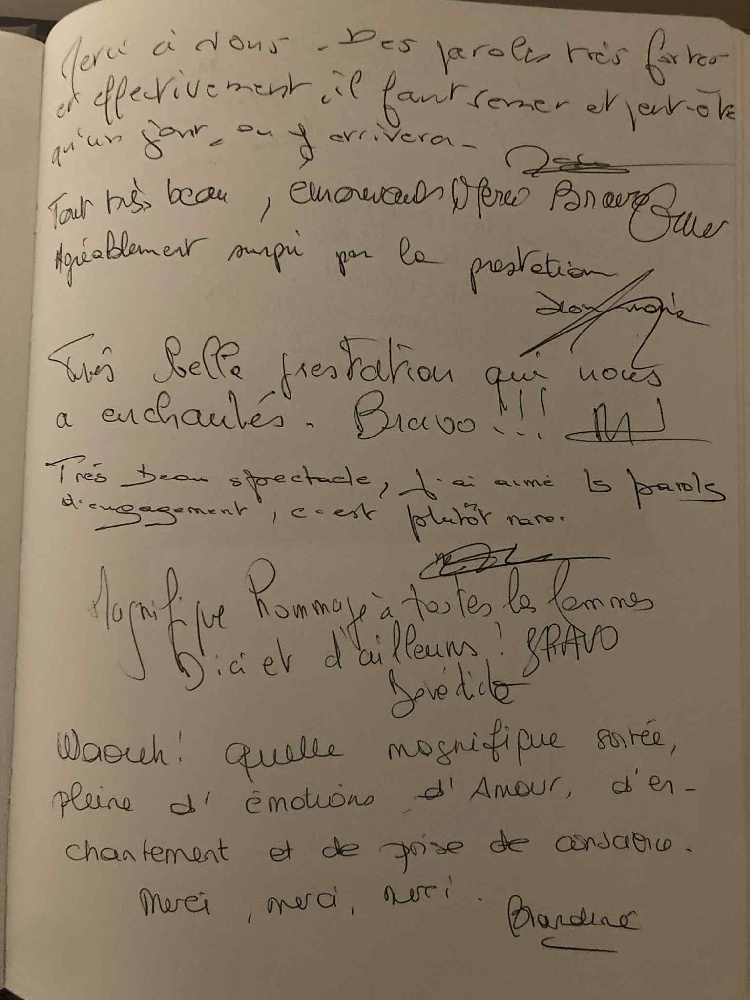 Merci à vous. Des paroles très fortes
et effectivement, il faut semer et peut-être
qu'un jour, on y arrivera.
Tout très beau, émouvant Merci Bravo
Agréablement surpri par la prestation
Très belle prestation qui nous
a enchantés. Bravo !!!
Très beau spectacle, j'ai aimé les paroles
d'engagement, c'est plutôt rare.
Magnifique hommage à toutes les femmes
D'ici et d'ailleurs ! BRAVO
Bénédicte
Waouh! quelle magnifique soirée,
pleine d'émotions d'Amour, d'en-
chantement et de prise de conscience.
Merci, merci, merci.
Blandine